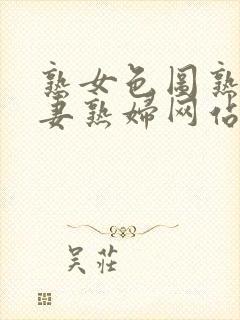 熟女色图熟
妻熟婦网佔
吴莊